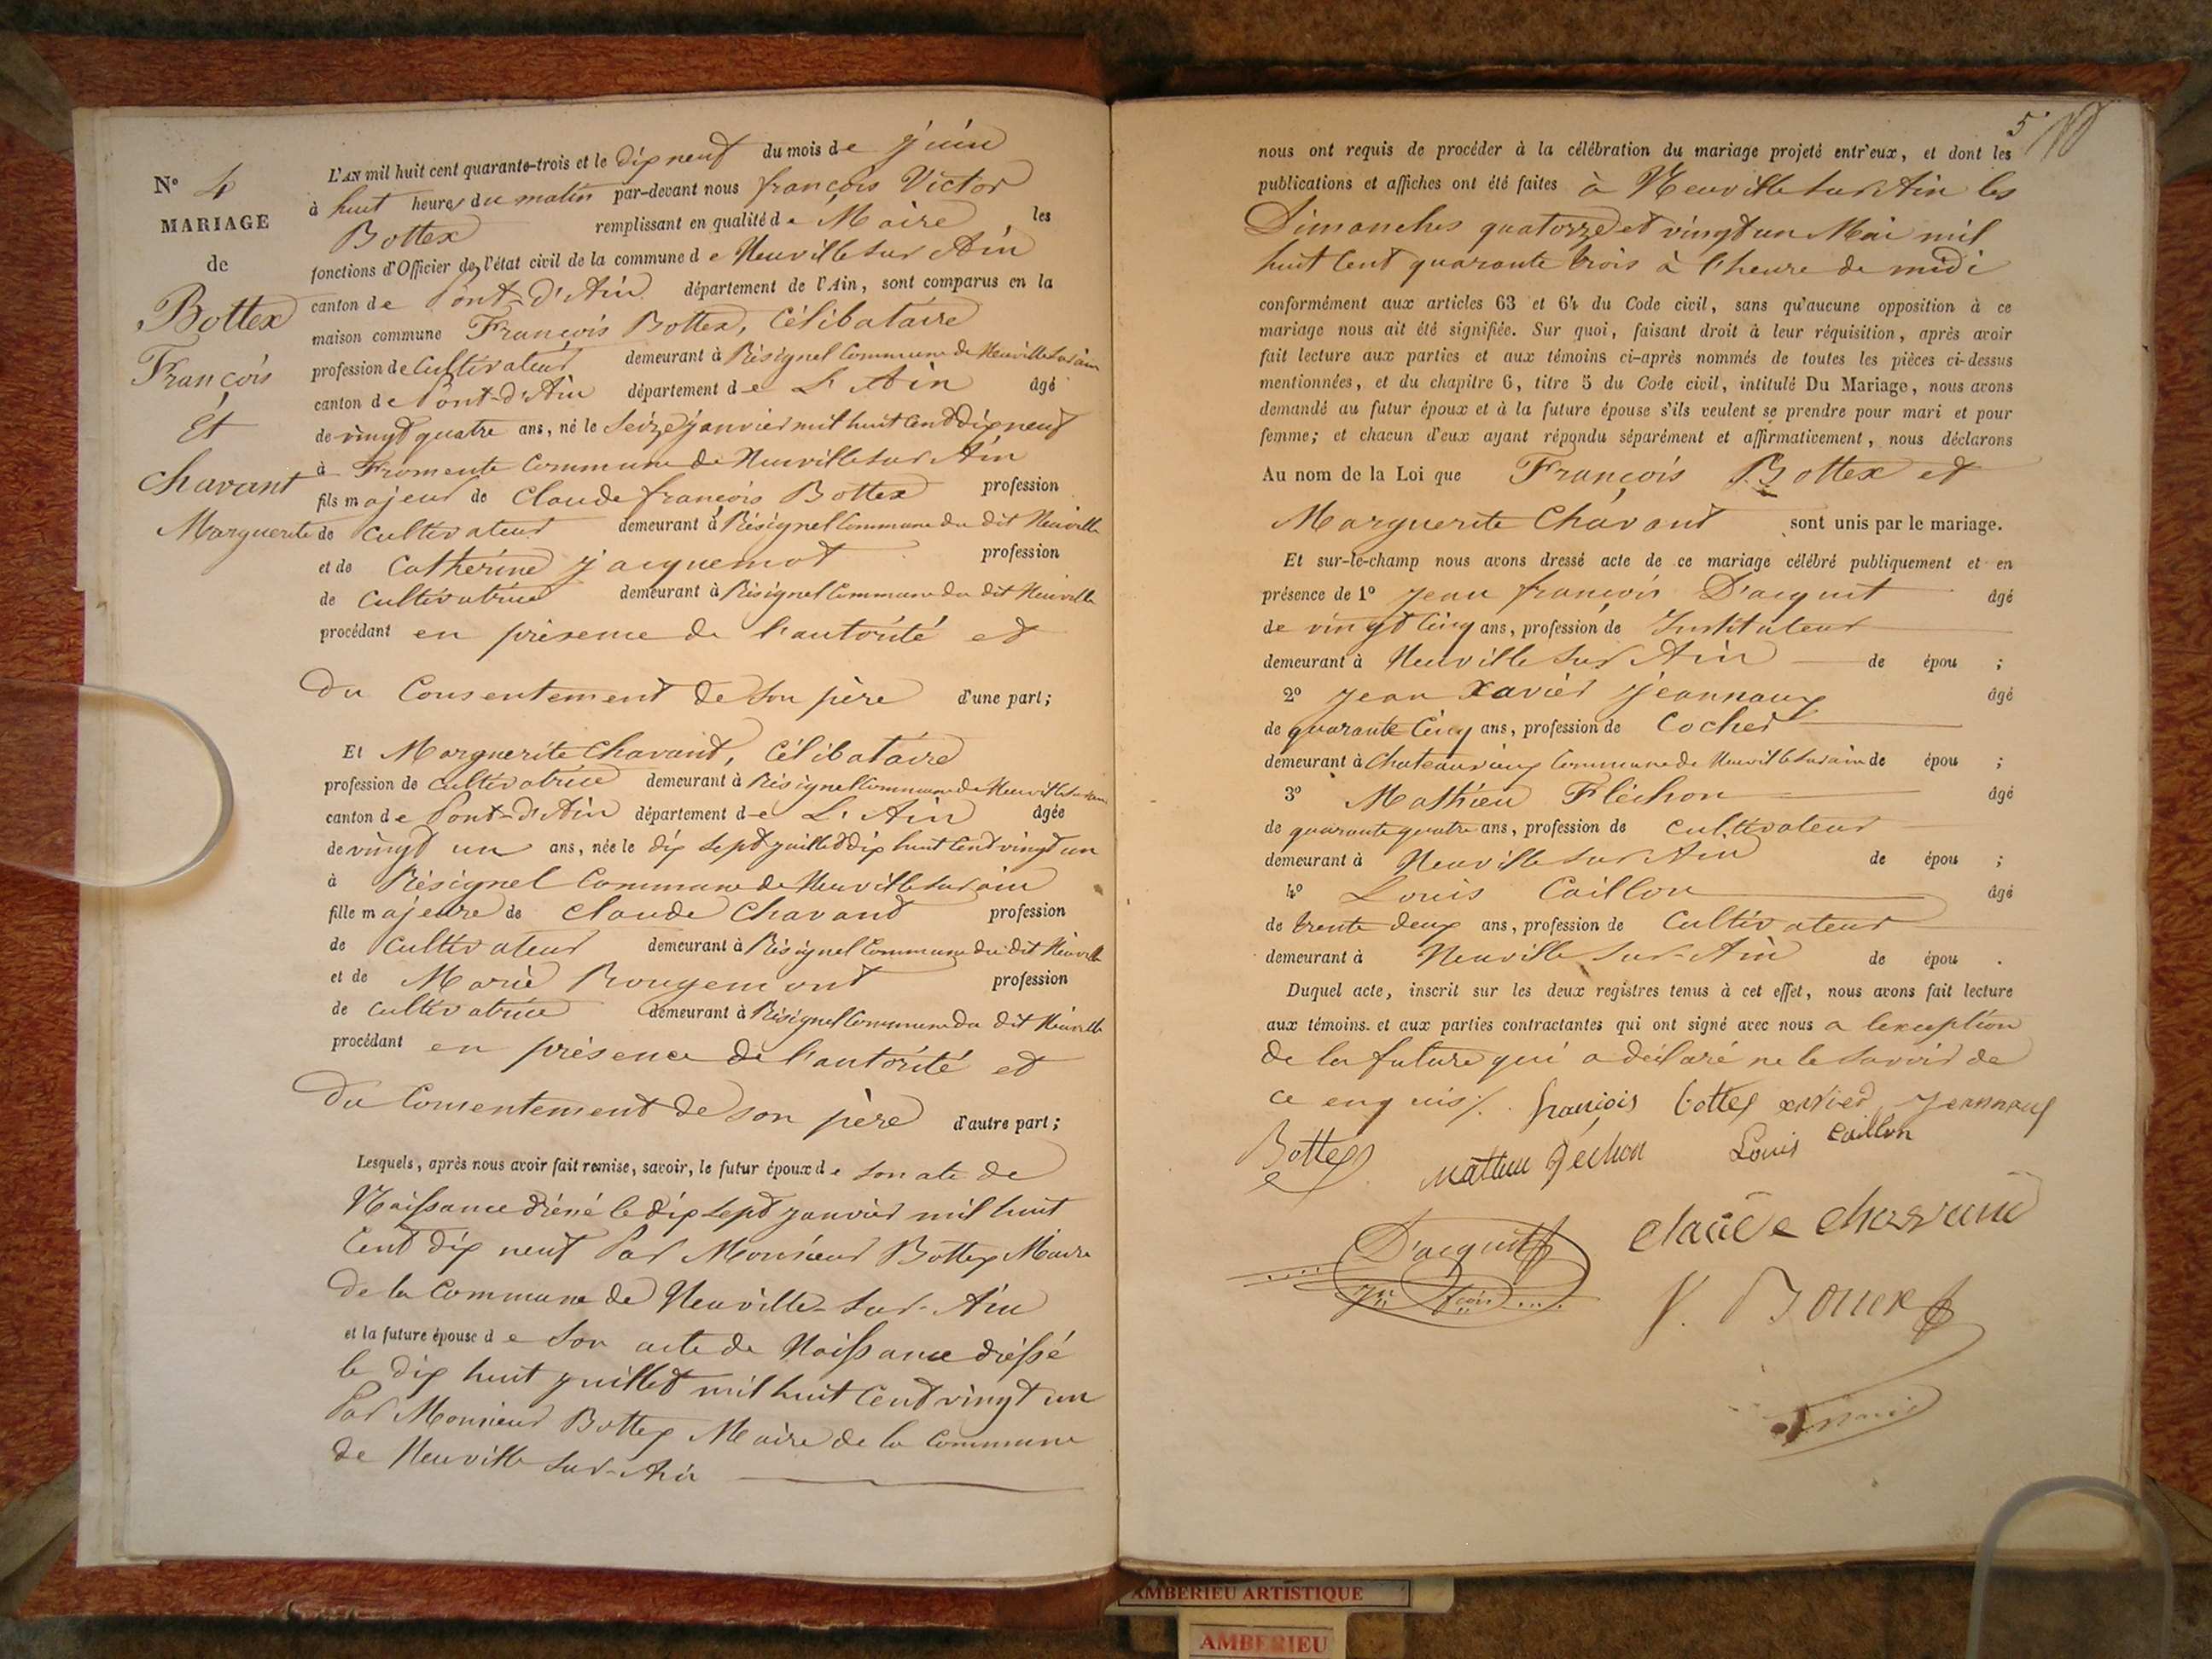 N° 4
MARIAGE
de
Bottex
François
Et
Chavant
Marguerite
L'AN mil huit cent quarante-trois et le dix neuf du mois de juin
à huit heures du matin par-devant nous françois Victor
Bottex remplissant en qualité de Maire les
fonctions d'Officier de l'état civil de la commune de Neuville sur Ain
canton de Pont-d'Ain département de l'Ain, sont comparus en la
maison commune François Bottex, Célibataire
profession de Cultivateur demeurant à Résignel Commune de Neuville Sur ain
canton de Pont-d'Ain département de L'Ain âgé
de vingt quatre ans, né le Seize janvier mil huit Cent dix neuf
à Fromente Commune de Neuville sur Ain
fils majeur de Claude françois Bottex profession
de Cultivateur demeurant à Résignel Commune du dit Neuville
et de Catherine jacquemot profession
de Cultivatrice demeurant à Résignel Commune du dit Neuville
procédant en présence de l'autorité et
du Consentement de Son père d'une part;
Et Marguerite Chavant, Célibataire
profession de Cultivatrice demeurant à Résignel Commune de Neuville Sur ain
canton de Pont-d'Ain département de L'Ain âgée
de vingt un ans, née le dix Sept juillet dix huit Cent vingt un
à Résignel Commune de Neuville sur ain
fille majeure de Claude Chavant profession
de Cultivateur demeurant à Résignel Commune du dit Neuville
et de Marie Rougemont profession
de Cultivatrice demeurant à Résignel Commune du dit Neuville
procédant en présence de l'autorité et
du Consentement de son père d'autre part;
Lesquels, après nous avoir fait remise, savoir, le futur époux de Son ate de
Naissance le dix Sept janvier mil huit
Cent dix neuf Par Monsieur Bottex Maire
de la Commune de Neuville-Sur-Ain
et la future épouse de Son acte de Naissance dressé
le dix huit juillet mil huit Cent vingt un
Par Monsieur Bottex Maire de la Commune
de Neuville Sur-Ain
5
nous ont requis de procéder à la célébration du mariage projeté entr'eux, et dont les
publications et affiches ont été faites à Neuville sur Ain les
Dimanches quatorze et vingt un Mai mil
huit Cent quarante trois à l'heure de midi
conformément aux articles 63 et 64 du Code civil, sans qu'aucune opposition à ce
mariage nous ait été signifiée. Sur quoi, faisant droit à leur réquisition, après avoir
fait lecture aux parties et aux témoins ci-après nommés de toutes les pièces ci-dessus
mentionnées, et du chapitre 6, titre 5 du Code civil, intitulé Du Mariage, nous avons
demandé au futur époux et à la future épouse s'ils veulent se prendre pour mari et pour
femme; et chacun d'eux ayant répondu séparément et affirmativement, nous déclarons
Au nom de la Loi que François Bottex et
Marguerite Chavant sont unis par le mariage.
Et sur-le-champ nous avons dressé acte de ce mariage célébré publiquement et en
présence de 1° jean françois D'acquit âgé
de vingt Cinq ans, profession de Instituteur
demeurant à Neuville Sur Ain de épou ;
2° jean Xavier jeannaux âgé
de quarante Cinq ans, profession de Cocher
demeurant à Chateauvieux Commune de Neuville Sur ain de épou ;
3° Mathieu Fléchon âgé
de quarante quatre ans, profession de Cultivateur
demeurant à Neuville Sur Ain de épou ;
4° Louis Caillon âgé
de trente deux ans, profession de Cultivateur
demeurant à Neuville Sur-Ain de épou .
Duquel acte, inscrit sur les deux registres tenus à cet effet, nous avons fait lecture
aux témoins et aux parties contractantes qui ont signé avec nous a lexception
de la future qui a déclaré ne le Savoir de
ce enquis /. françois bottex xavier jeannaux
Bottex Louis Caillon
D'acquit
AMBERIEU ARTISTIQUE
AMBERIEU